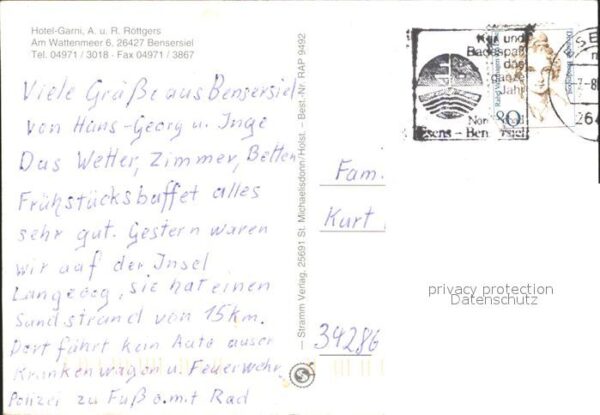 Hotel-Garni, A. u. R. Röttgers
Am Wattenmeer 6, 26427 Bensersiel
Tel. 04971 / 3018 - Fax 04971 / 3867
Viele Grüße aus Bensersiel
von Hans-Georg u. Inge
Das Wetter, Zimmer, Betten
Frühstücksbuffet alles
sehr gut. Gestern waren
wir auf der Insel
Langeoog, sie hat einen
Sandstrand von 15km.
Dort fährt kein Auto ausser
Krankenwagen u. Feuerwehr
Polizei zu Fuß o. mit Rad
— Stramm Verlag, 25691 St. Michaelisdonn/Holst. - Best.-Nr. RAP 9492
Kur und
Badespaß
das
ganze
Jahr
Esens - Bensersiel
80
Fam.
Kurt
34286
privacy protection
Datenschutz